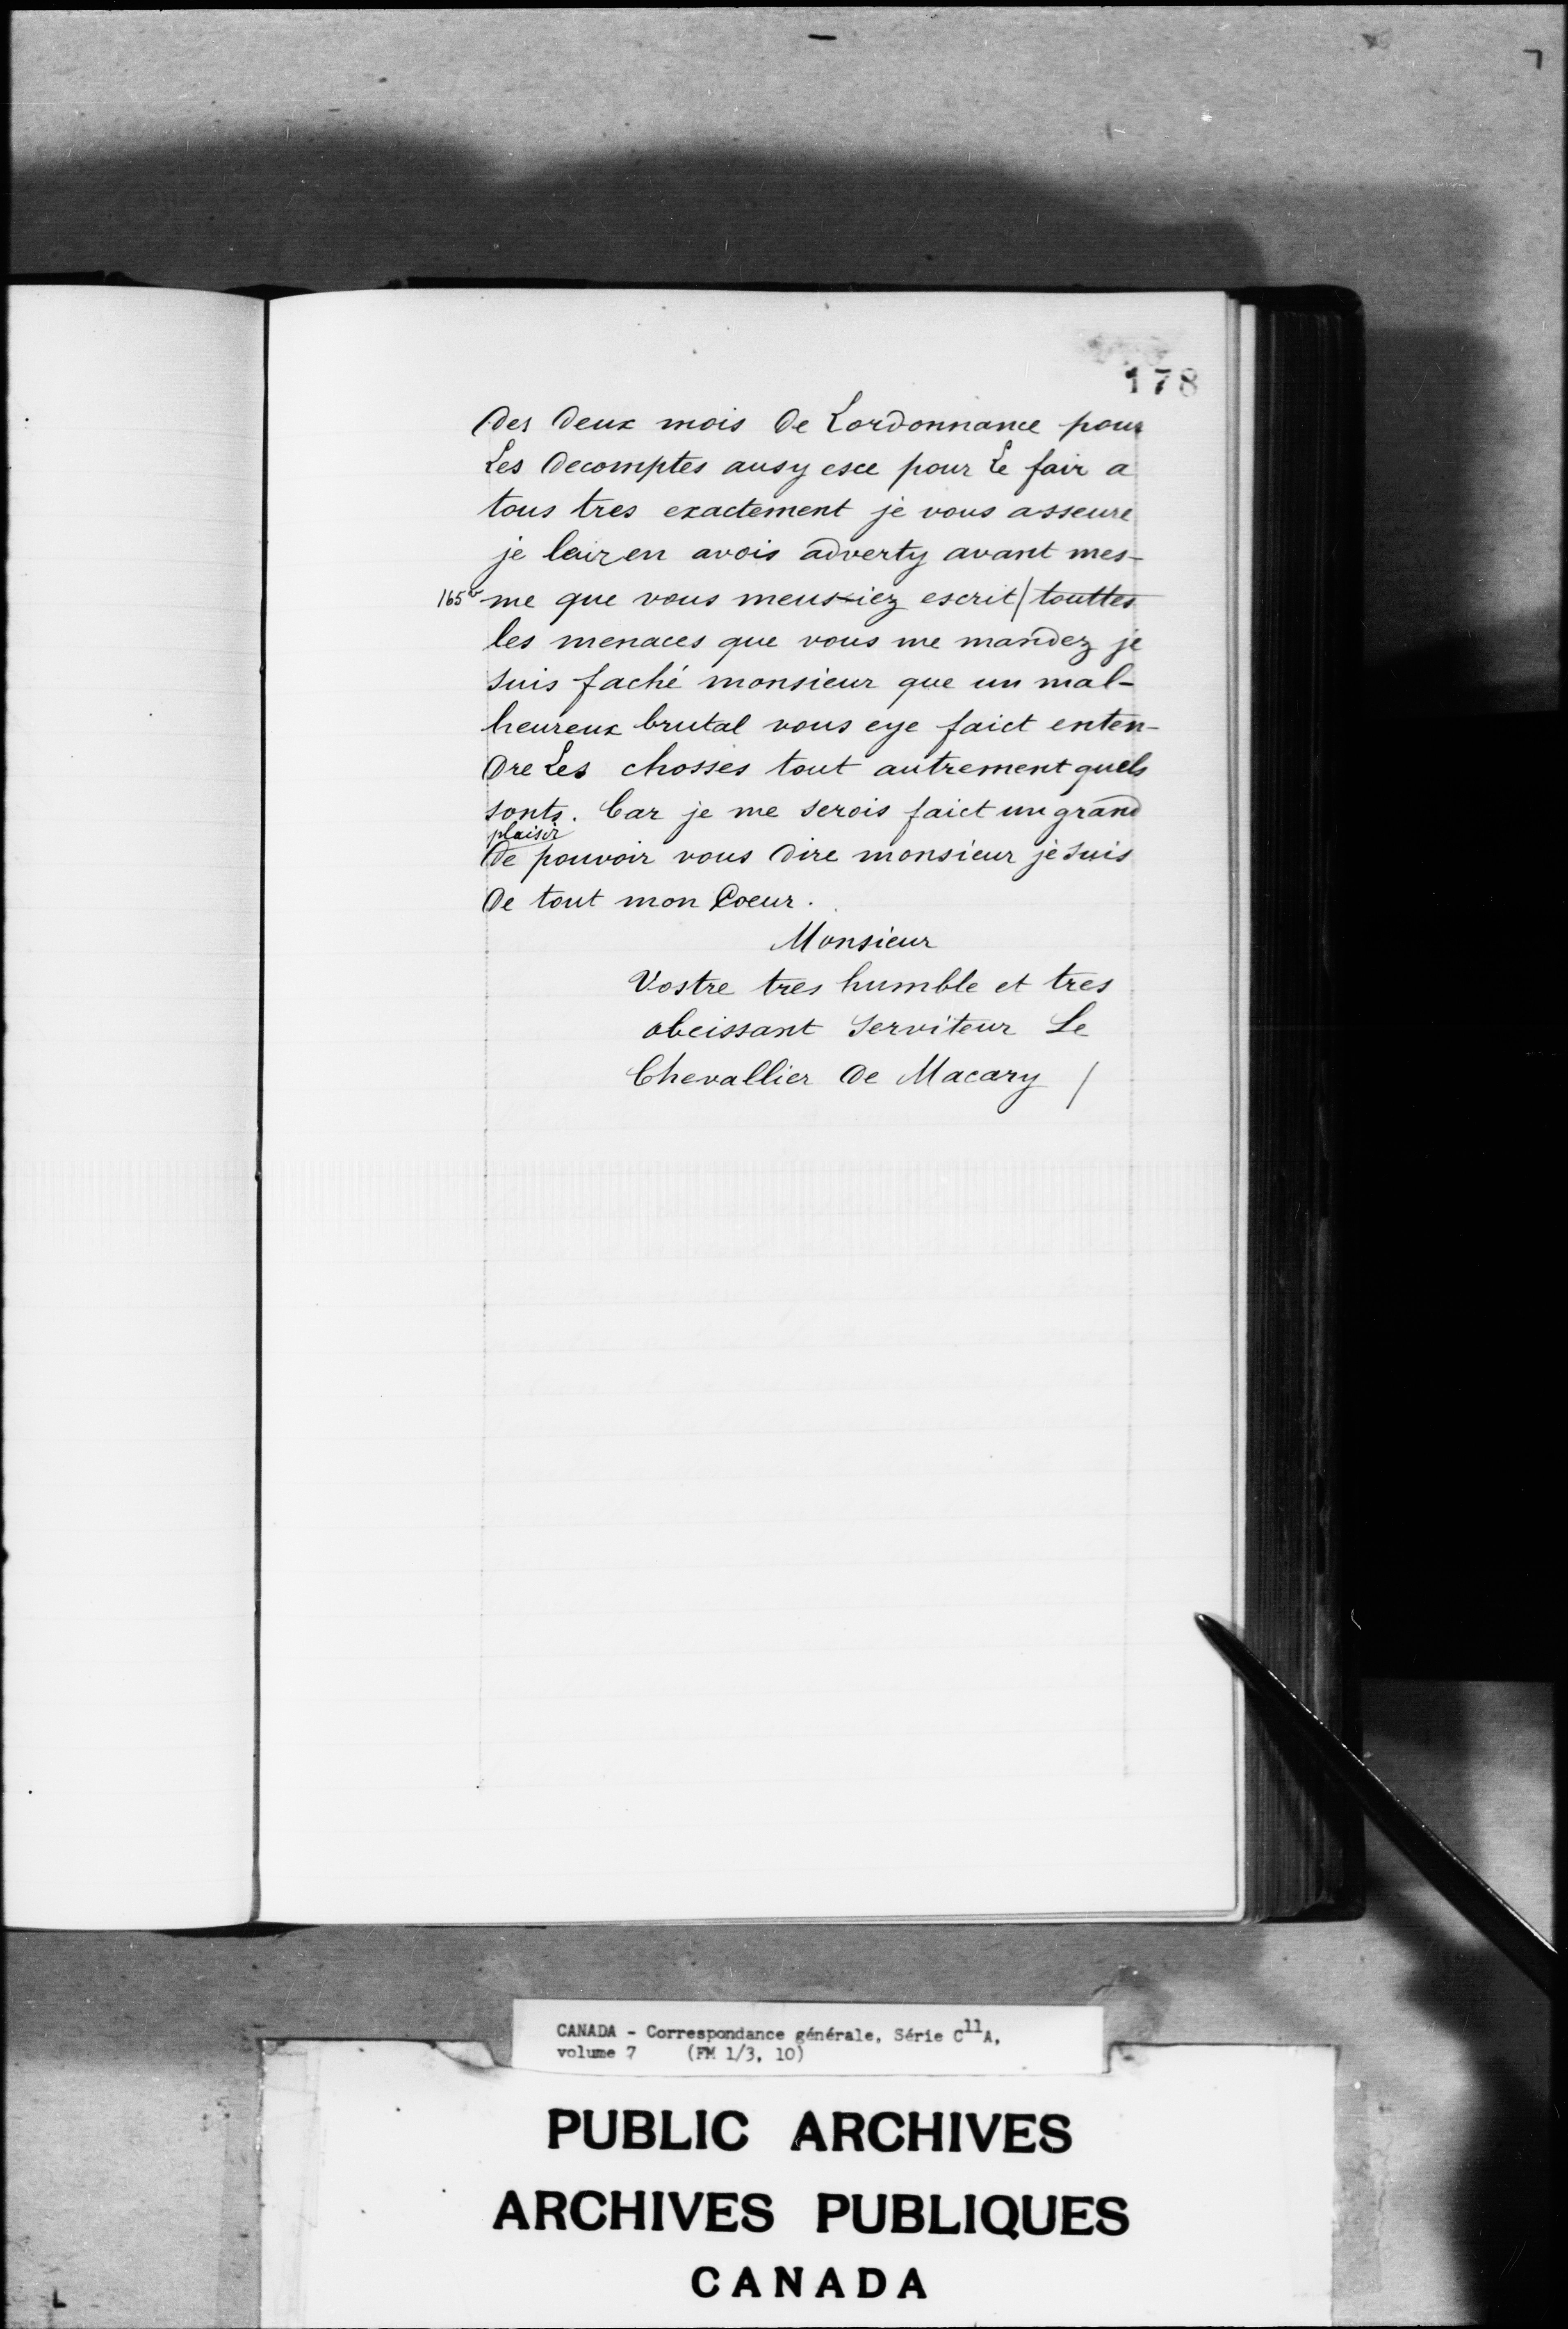 178
des deux mois de Lordonnance pour
Les decomptes ausy esce pour Le fair a
tous tres exactement je vous asseure
je leur en avois adverty avant mes-
165v me que vous meussiez escrit / touttes
les menaces que vous me mandez je
suis faché monsieur que un mal-
heureux brutal vous eye faict enten-
dre Les chosses tout autrement quels
sonts. Car je me serois faict un grand
plaisir
de pouvoir vous dire monsieur je suis
de tout mon Coeur.
Monsieur
Vostre tres humble et tres
obeissant serviteur Le
Chevallier de Macary /
CANADA - Correspondance générale, Série C11A,
volume 7 (FM 1/3, 10)
PUBLIC ARCHIVES
ARCHIVES PUBLIQUES
CANADA